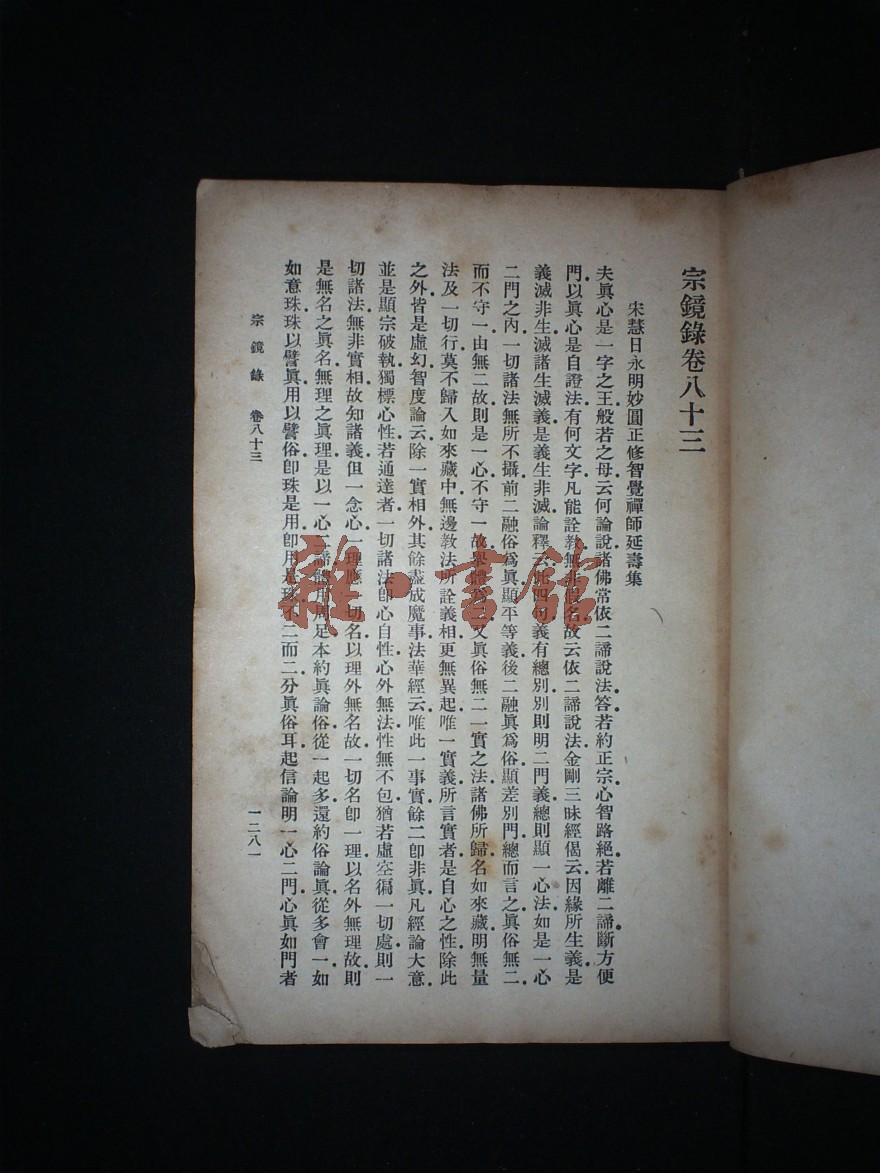 宗鏡錄卷八十三
宋慧日永明妙圓正修智覺禪師延壽集
夫眞心是一字之王般若之母云何論說諸佛常依二諦說法答若約正宗心智路絕若離二諦斷方便
門以眞心是自證法有何文字凡能詮教無非假名故云依二諦說法金剛三昧經偈云因緣所生義是
義滅非生滅諸生滅義是義生非滅論釋云此四句義有總別別則明二門義總則顯一心法如是一心
二門之內一切諸法無所不攝前二融俗爲眞顯平等義後二融眞爲俗顯差別門總而言之眞俗無二
而不守一由無二故則是一心不守一故舉體爲二又眞俗無二一實之法諸佛所歸名如來藏明無量
法及一切行莫不歸入如來藏中無邊教法所詮義相更無異起唯一實義所言實者是自心之性除此
之外皆是虛幻智度論云除一實相外其餘盡成魔事法華經云唯此一事實餘二卽非眞凡經論大意
並是顯宗破執獨標心性若通達者一切諸法卽心自性心外無法性無不包猶若虛空徧一切處則一
切諸法無非實相故知諸義但一念心一理應一切名以理外無名故一切名卽一理以名外無理故則
是無名之眞名無理之眞理是以一心二諦體用周足本約眞論俗從一起多還約俗論眞從多會一如
如意珠珠以譬眞用以譬俗卽珠是用卽用是珠不二而二分眞俗耳起信論明一心二門心眞如門者
宗鏡錄 卷八十三
一二八一
雜·書館